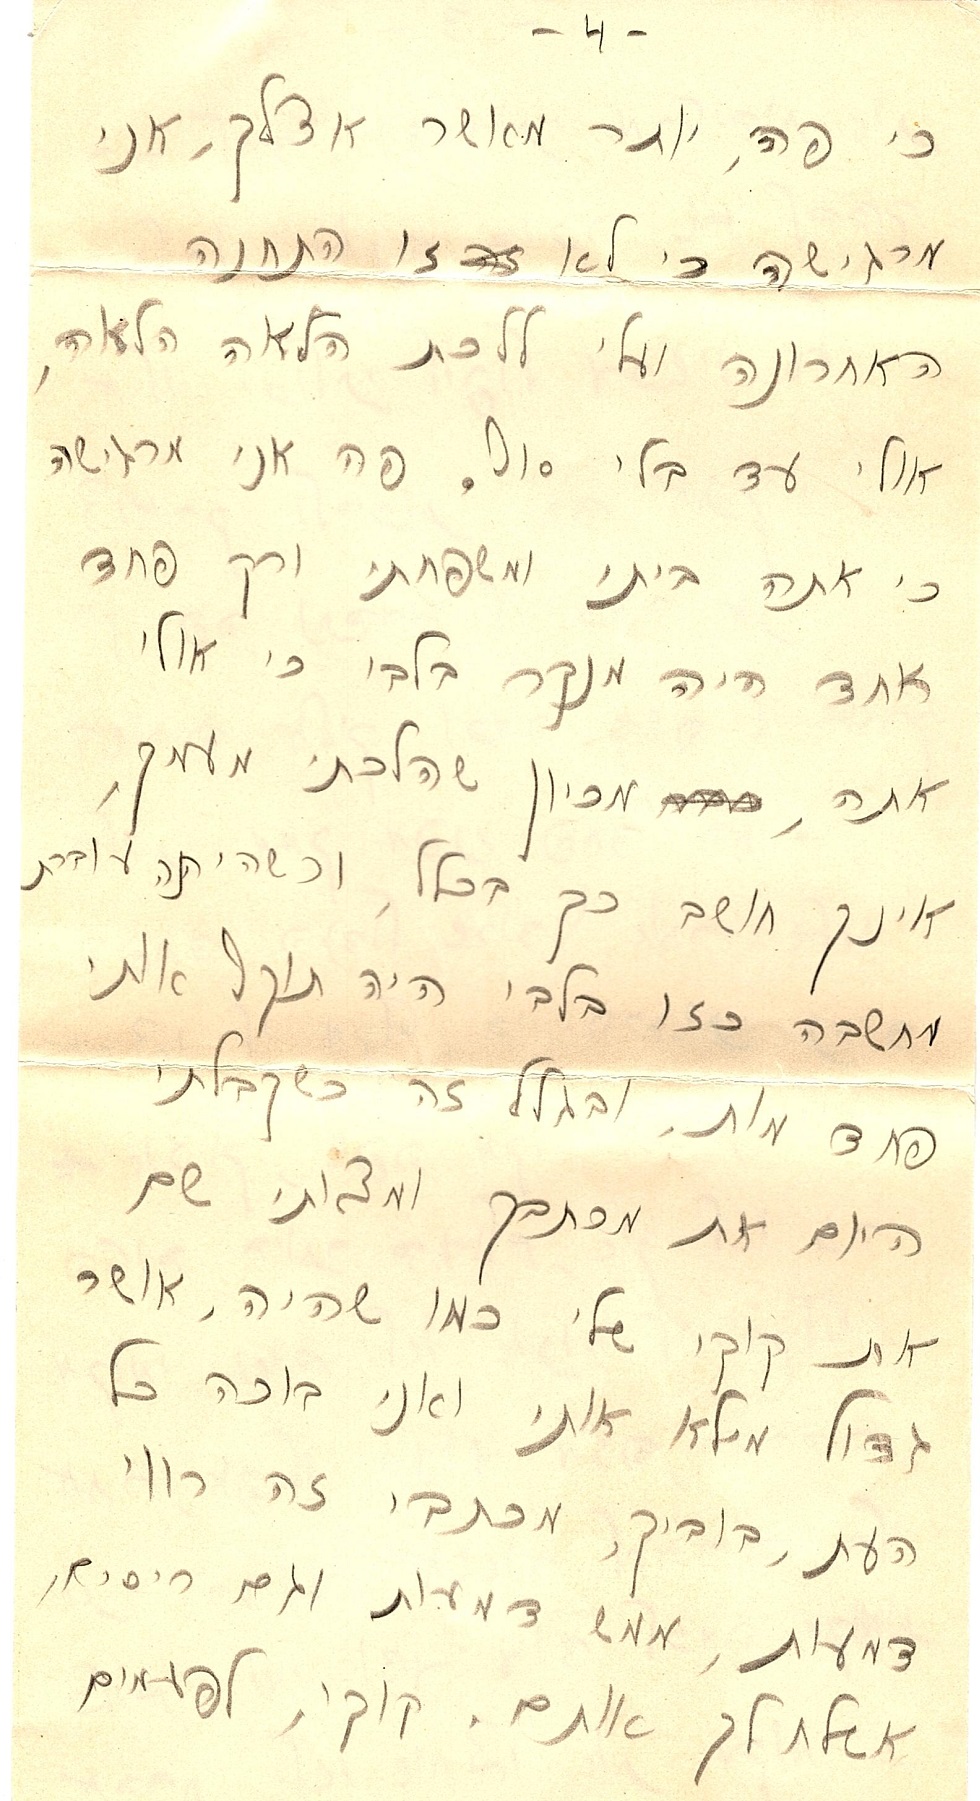 - 4 -
כי פה, יותר מאושר אצלך, אני
מרגישה כי לא זו התחנה
האחרונה ועלי ללכת הלאה הלאה,
אולי עד בלי סוף. פה אני מרגישה
כי אתה ביתי ומשפחתי ורק פחד
אחד היה מנקר בלבי כי אולי
אתה, מכיון שהלכתי מעמך,
אינך חושב כך בכלל, וכשהיתה עוברת
מחשבה כזו בלבי היה תוקף אותי
פחד מות. ובגלל זה כשקבלתי
היום את מכתבך ומצאתי שם
את קוקי שלי כמו שהיה, אושר
גדול מלא אותי ואני בוכה כל
העת, בוביק, מכתבי זה רווי
דמעות, ממש דמעות וגם
אשלח לך אותם. קוקי, לפעמים